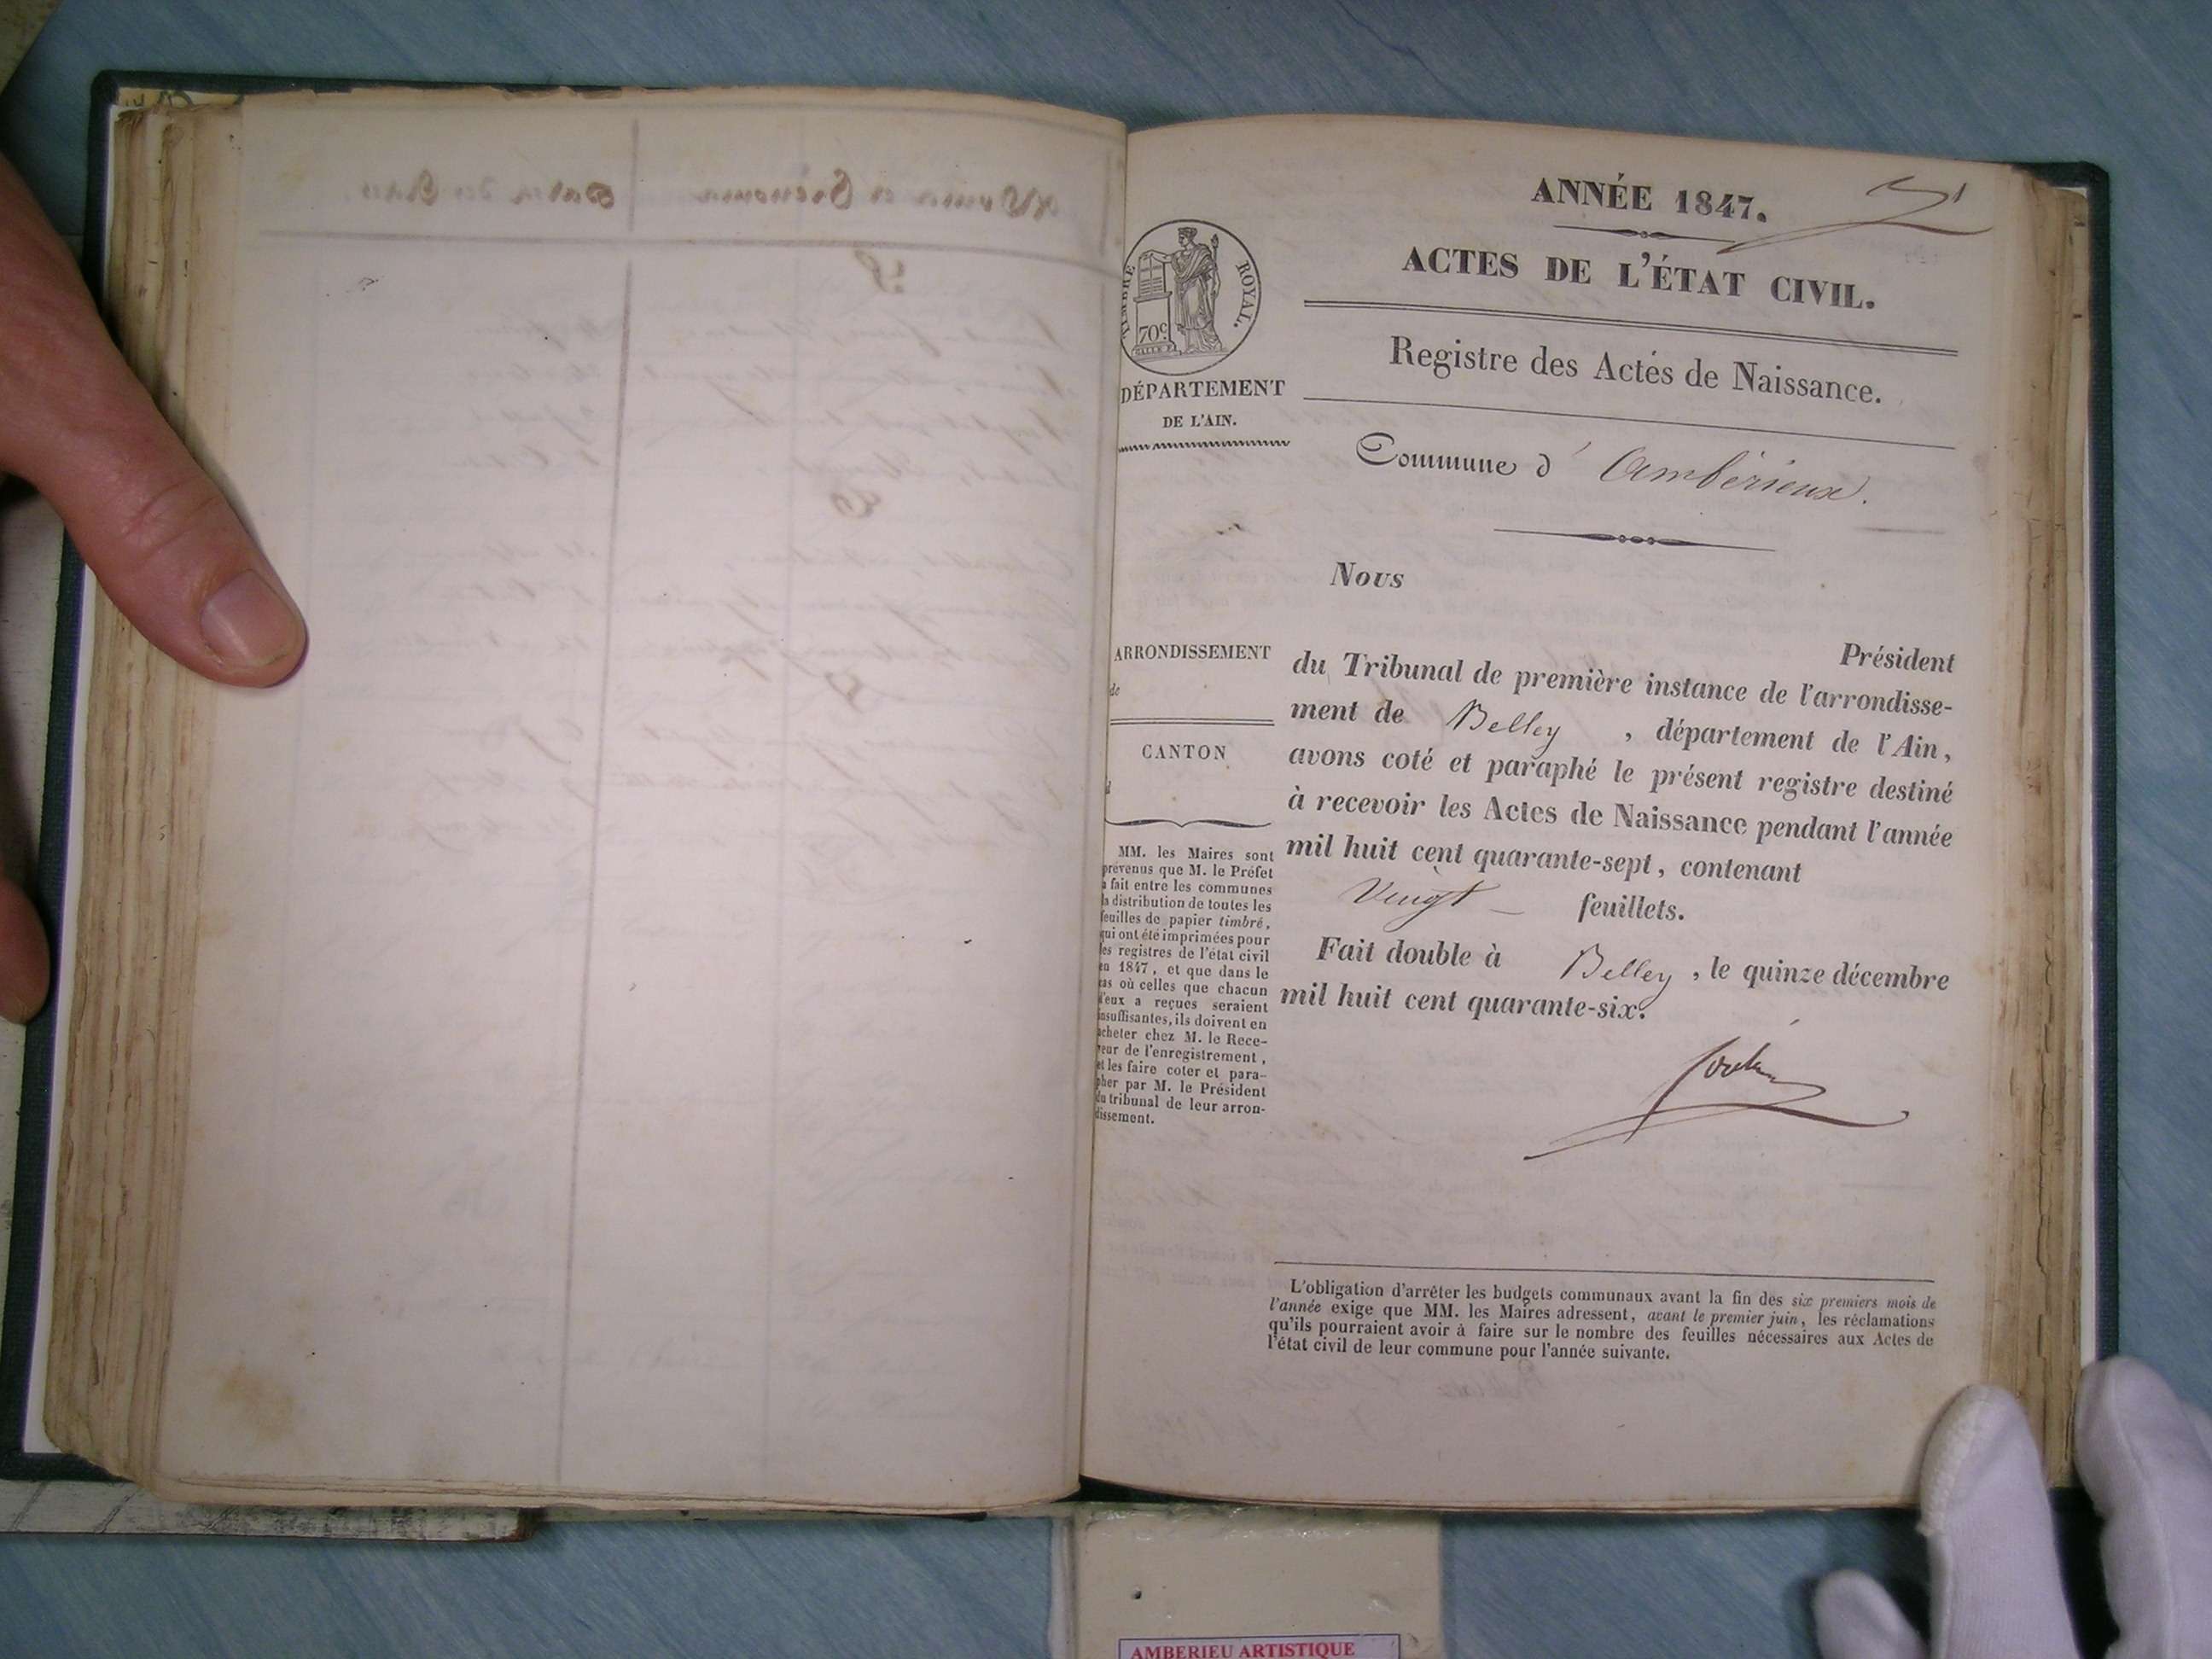 ANNÉE 1847.
ACTES DE L'ÉTAT CIVIL.
Registre des Actes de Naissance.
TIMBRE ROYAL.
70c
DÉPARTEMENT
DE L'AIN.
Commune d' Ambérieux.
Nous
Président
du Tribunal de première instance de l'arrondisse-
ment de Belley , département de l'Ain,
avons coté et paraphé le présent registre destiné
à recevoir les Actes de Naissance pendant l'année
mil huit cent quarante-sept, contenant
Vingt feuillets.
Fait double à Belley, le quinze décembre
mil huit cent quarante-six.
ARRONDISSEMENT
de
CANTON
d
MM. les Maires sont
prévenus que M. le Préfet
a fait entre les communes
la distribution de toutes les
feuilles de papier timbré,
qui ont été imprimées pour
les registres de l'état civil
en 1847, et que dans le
cas où celles que chacun
d'eux a reçues seraient
insuffisantes, ils doivent en
acheter chez M. le Rece-
veur de l'enregistrement,
et les faire coter et para-
pher par M. le Président
du tribunal de leur arron-
dissement.
L'obligation d'arrêter les budgets communaux avant la fin des six premiers mois de
l'année exige que MM. les Maires adressent, avant le premier juin, les réclamations
qu'ils pourraient avoir à faire sur le nombre des feuilles nécessaires aux Actes de
l'état civil de leur commune pour l'année suivante.
AMBERIEU ARTISTIQUE